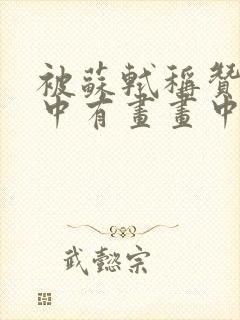 被蘇軾稱贊
中有畫畫中
武懿宗